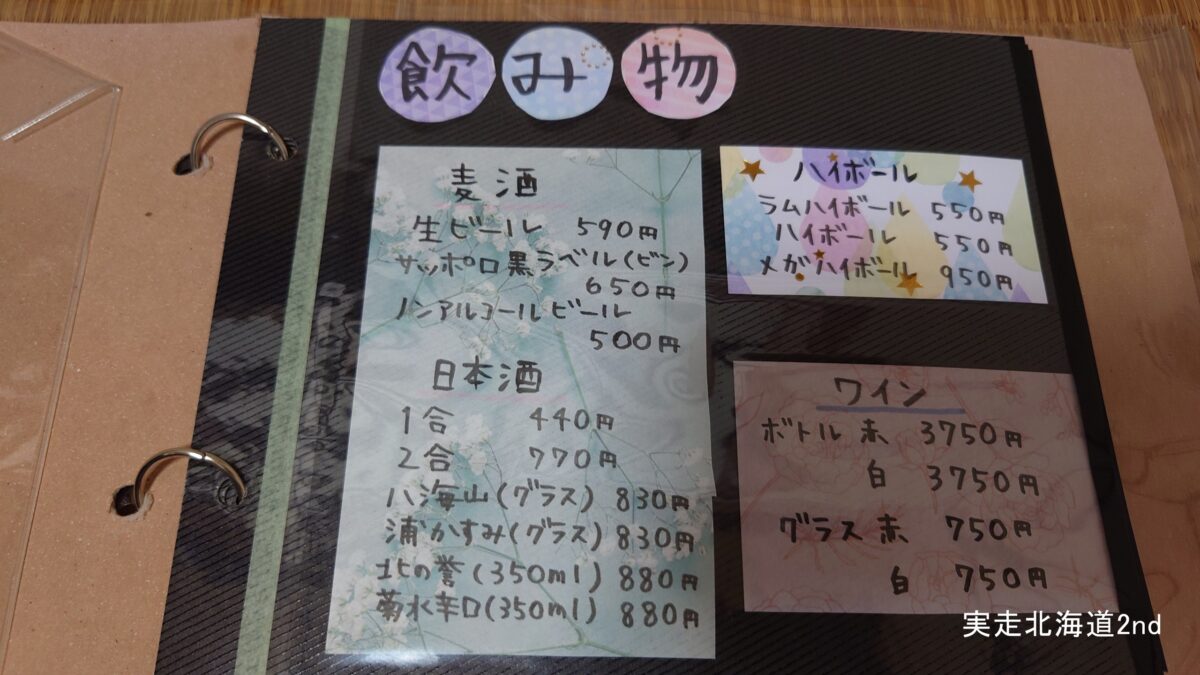 飲み物
麦酒
生ビール 590円
サッポロ黒ラベル(ビン)
650円
ノンアルコールビール
500円
日本酒
1合 440円
2合 770円
八海山(グラス) 830円
浦かすみ(グラス) 830円
北の誉(350ml) 880円
菊水辛口(350ml) 880円
ハイボール
ラムハイボール 550円
ハイボール 550円
メガハイボール 950円
ワイン
ボトル 赤 3750円
白 3750円
グラス 赤 750円
白 750円
実走北海道2nd